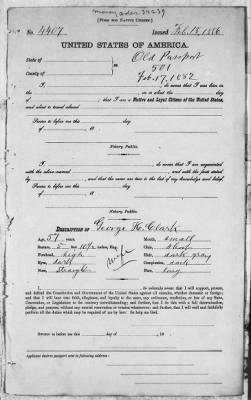 money order 30239
[FORM FOR NATIVE CITIZEN.]
No. 4407 Issued Feb. 18, 1886
UNITED STATES OF AMERICA.
State of Old Passport
501
County of Feb. 17, 1882
I, do
that I was born in the
in on or about the day
of , that I am a Native and Loyal Citizen of the United States,
and about to travel abroad
Sworn to before me this day
of , 18
Notary Public.
I, do that I am acquainted
with the above-named and with the facts
and that the same are true to the best of my knowledge and belief.
Sworn to before me this day
of , 18
Notary Public.
DESCRIPTION OF George H. Clark
Age, 51 years Mouth, small
Stature, 5 10½ inches, Eng. Chin,
Forehead, high Hair, dark gray
Eyes, dark Complexion, dark
Nose, straight Face, long
wife
I, , do solemnly swear that I will support, protect,
and defend the Constitution and Government of the United States against all enemies, whether domestic or foreign;
and that I will bear true faith, allegiance, and loyalty to the same, any ordinance, resolution, or law of any State,
Convention, or Legislature to the contrary notwithstanding; and further, that I do this with a full determination,
pledge, and purpose, without any mental reservation or evasion whatsoever; and further, that I will well and faithfully
perform all the duties which may be required of me by law: So help me God.
Sworn to before me this day of , 18
Applicant desires passport sent to following address: